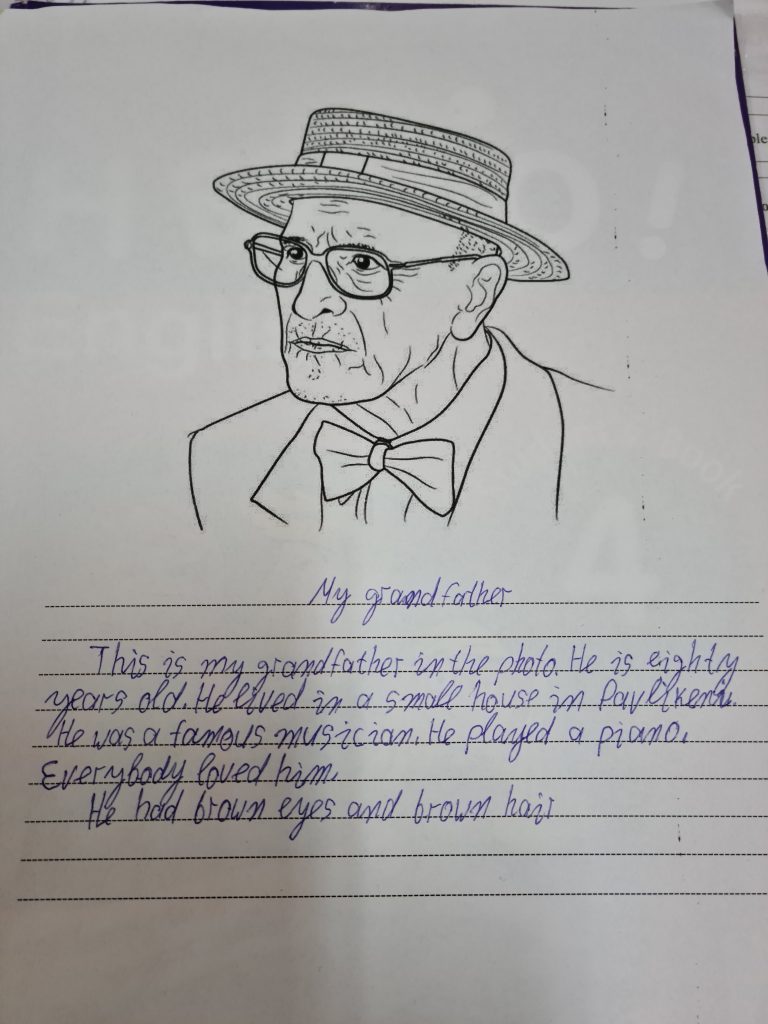 My grandfather
This is my grandfather in the photo. He is eighty
years old. He lived in a small house in Pavlikeni.
He was a famous musician. He played a piano.
Everybody loved him.
He had brown eyes and brown hair